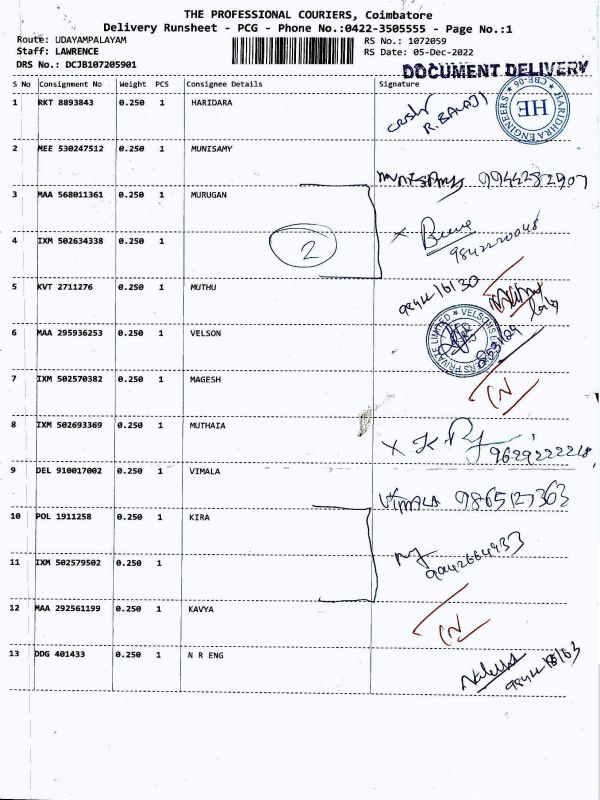 THE PROFESSIONAL COURIERS, Coimbatore
Delivery Runsheet - PCG - Phone No.:0422-3505555 - Page No.:1
Route: UDAYAMPALAYAM
RS No.: 1072059
Staff: LAWRENCE
RS Date: 05-Dec-2022
DRS No.: DCJB107205901
DOCUMENT DELIVERY
S No Consignment No Weight PCS Consignee Details Signature
1 RKT 8893843 0.250 1 HARIDARA
R. BALAJI
HARIDHRA ENGINEERS
HE
2 MEE 530247512 0.250 1 MUNISAMY
9944282907
3 MAA 568011361 0.250 1 MURUGAN
2
4 IXM 502634338 0.250 1
5 KVT 2711276 0.250 1 MUTHU
6 MAA 295936253 0.250 1 VELSON
PRIVATE LIMITED
7 IXM 502570382 0.250 1 MAGESH
8 IXM 502693369 0.250 1 MUTHAIA
9629222218
9 DEL 910017002 0.250 1 VIMALA
VIMALA 9865127363
10 POL 1911258 0.250 1 KIRA
11 IXM 502579502 0.250 1
12 MAA 292561199 0.250 1 KAVYA
13 DDG 401433 0.250 1 N R ENG